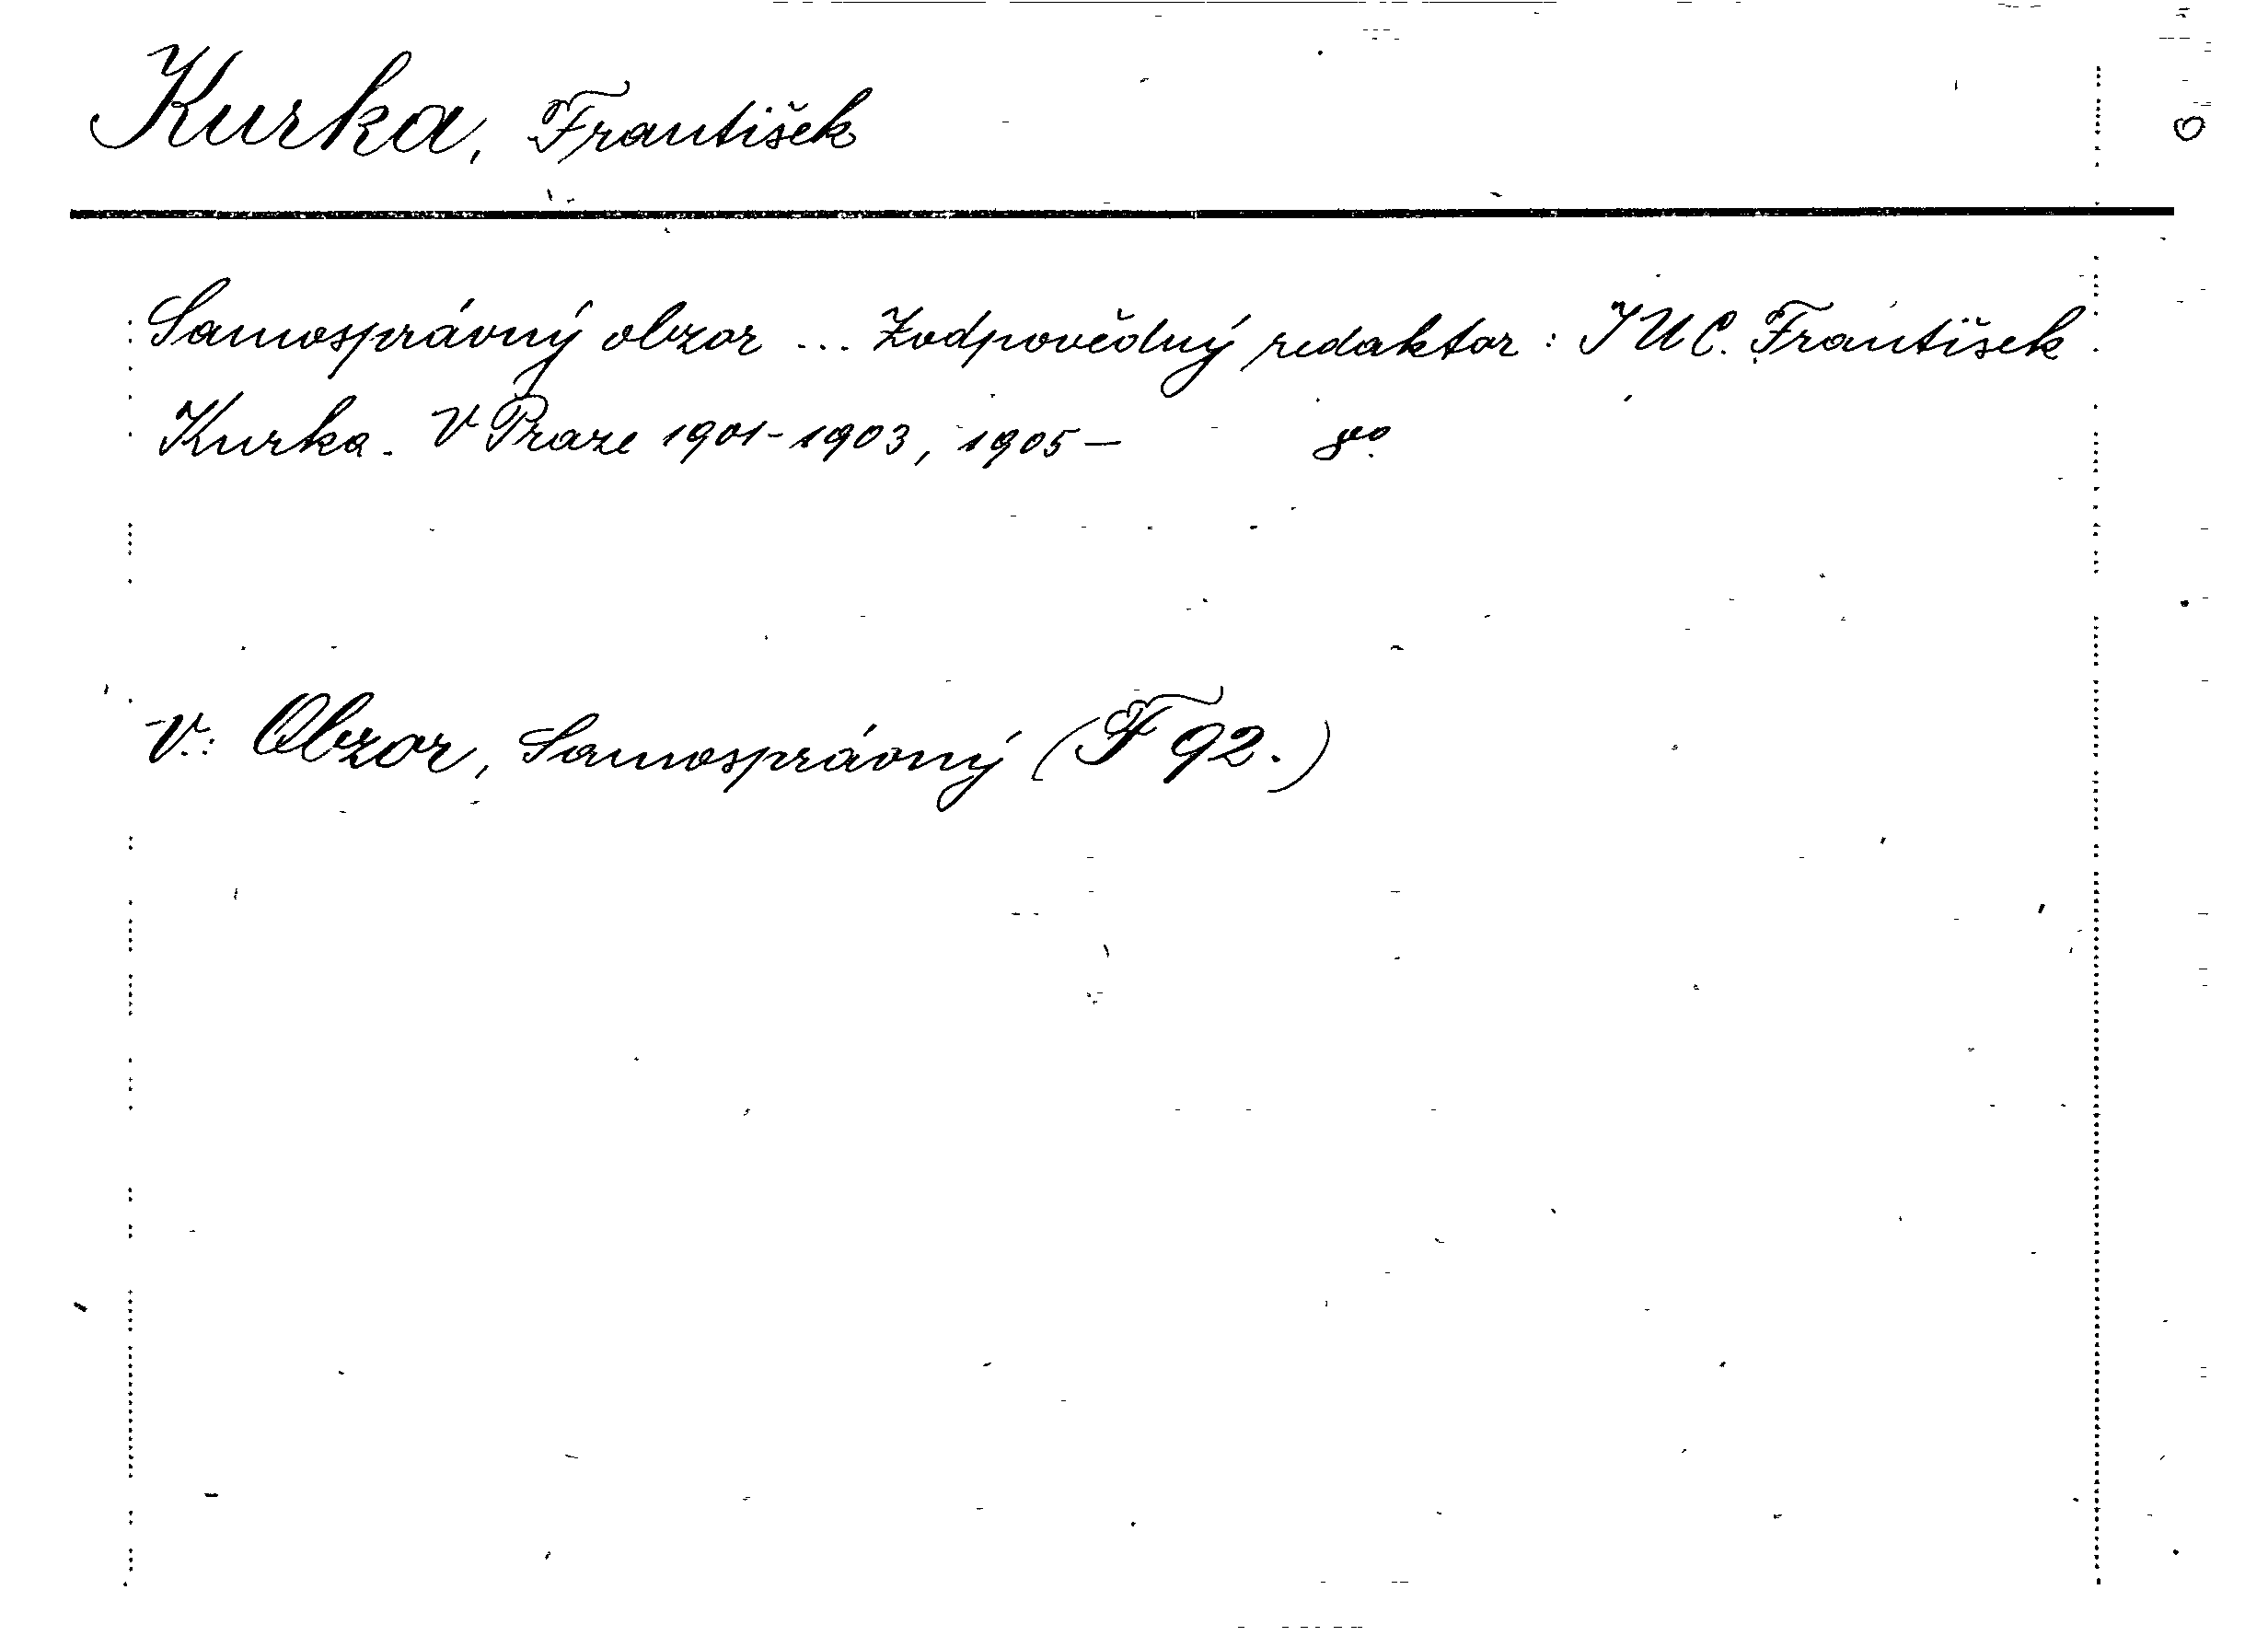 Kurka, František
Samosprávný obzor ... Zodpovědný redaktor: JUC. František
Kurka. V Praze 1901-1903, 1905- 8vo.
V.: Obzor, Samosprávný (F 92.)